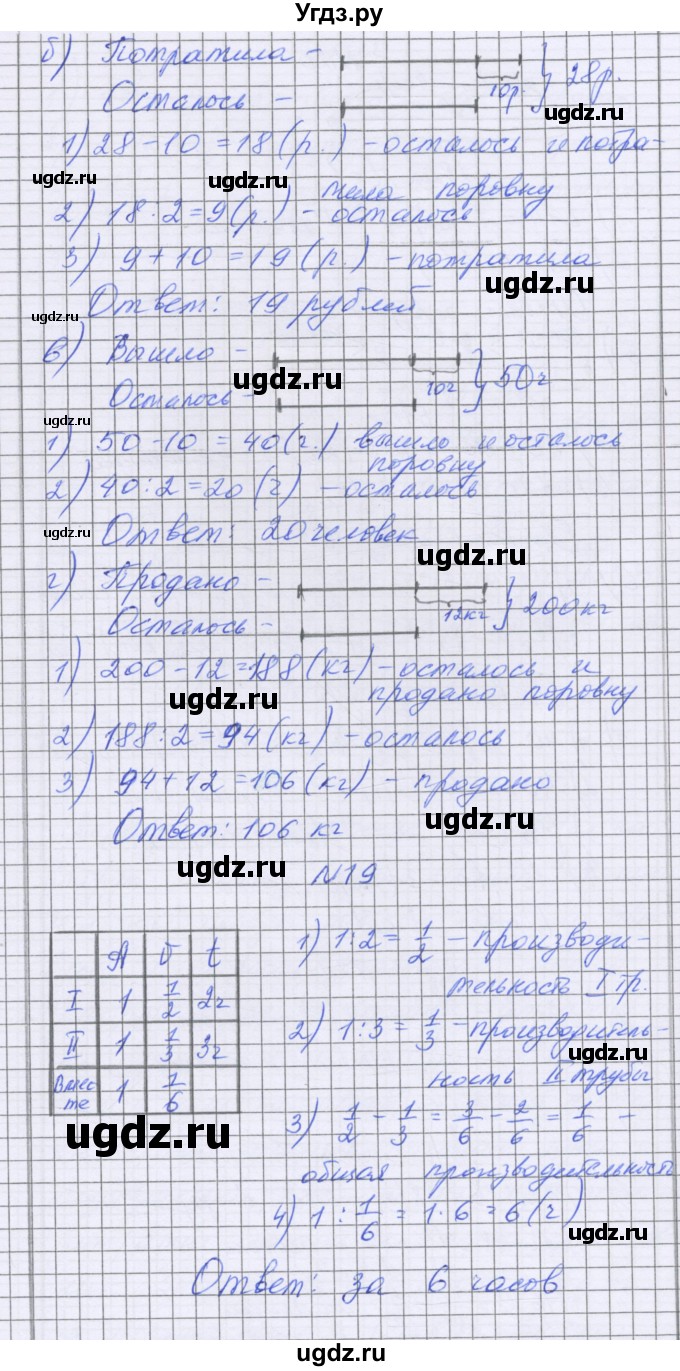 Угдз.ру
б) Потратила -
10р. } 28р.
Осталось -
ugdz.ru
1) 28 - 10 = 18 (р.) - осталось и потра-
ugdz.ru
ugdz.ru
тила поровну
2) 18 : 2 = 9 (р.) - осталось
3) 9 + 10 = 19 (р.) - потратила
ugdz.ru
Ответ: 19 рублей
ugdz.ru
в) Вышло -
10ч } 50ч
ugdz.ru
Осталось -
ugdz.ru
1) 50 - 10 = 40 (ч.) вышло и осталось
поровну
2) 40 : 2 = 20 (ч) - осталось
ugdz.ru
Ответ: 20 человек
ugdz.ru
г) Продано -
12кг } 200кг
Осталось -
1) 200 - 12 = 188 (кг) - осталось и
продано поровну
ugdz.ru
2) 188 : 2 = 94 (кг) - осталось
3) 94 + 12 = 106 (кг) - продано
Ответ: 106 кг
ugdz.ru
ugdz.ru
N19
A v t
I 1 1/2 2ч
II 1 1/3 3ч
Вмес-
те 1 1/6
ugdz.ru
1) 1 : 2 = 1/2 - производи-
тельность I тр.
2) 1 : 3 = 1/3 - производитель-
ugdz.ru
ность II трубы
3) 1/2 - 1/3 = 3/6 - 2/6 = 1/6 -
общая производительность
4) 1 : 1/6 = 1 · 6 = 6 (ч)
ugdz.ru
Ответ: за 6 часов
Угдз.ру